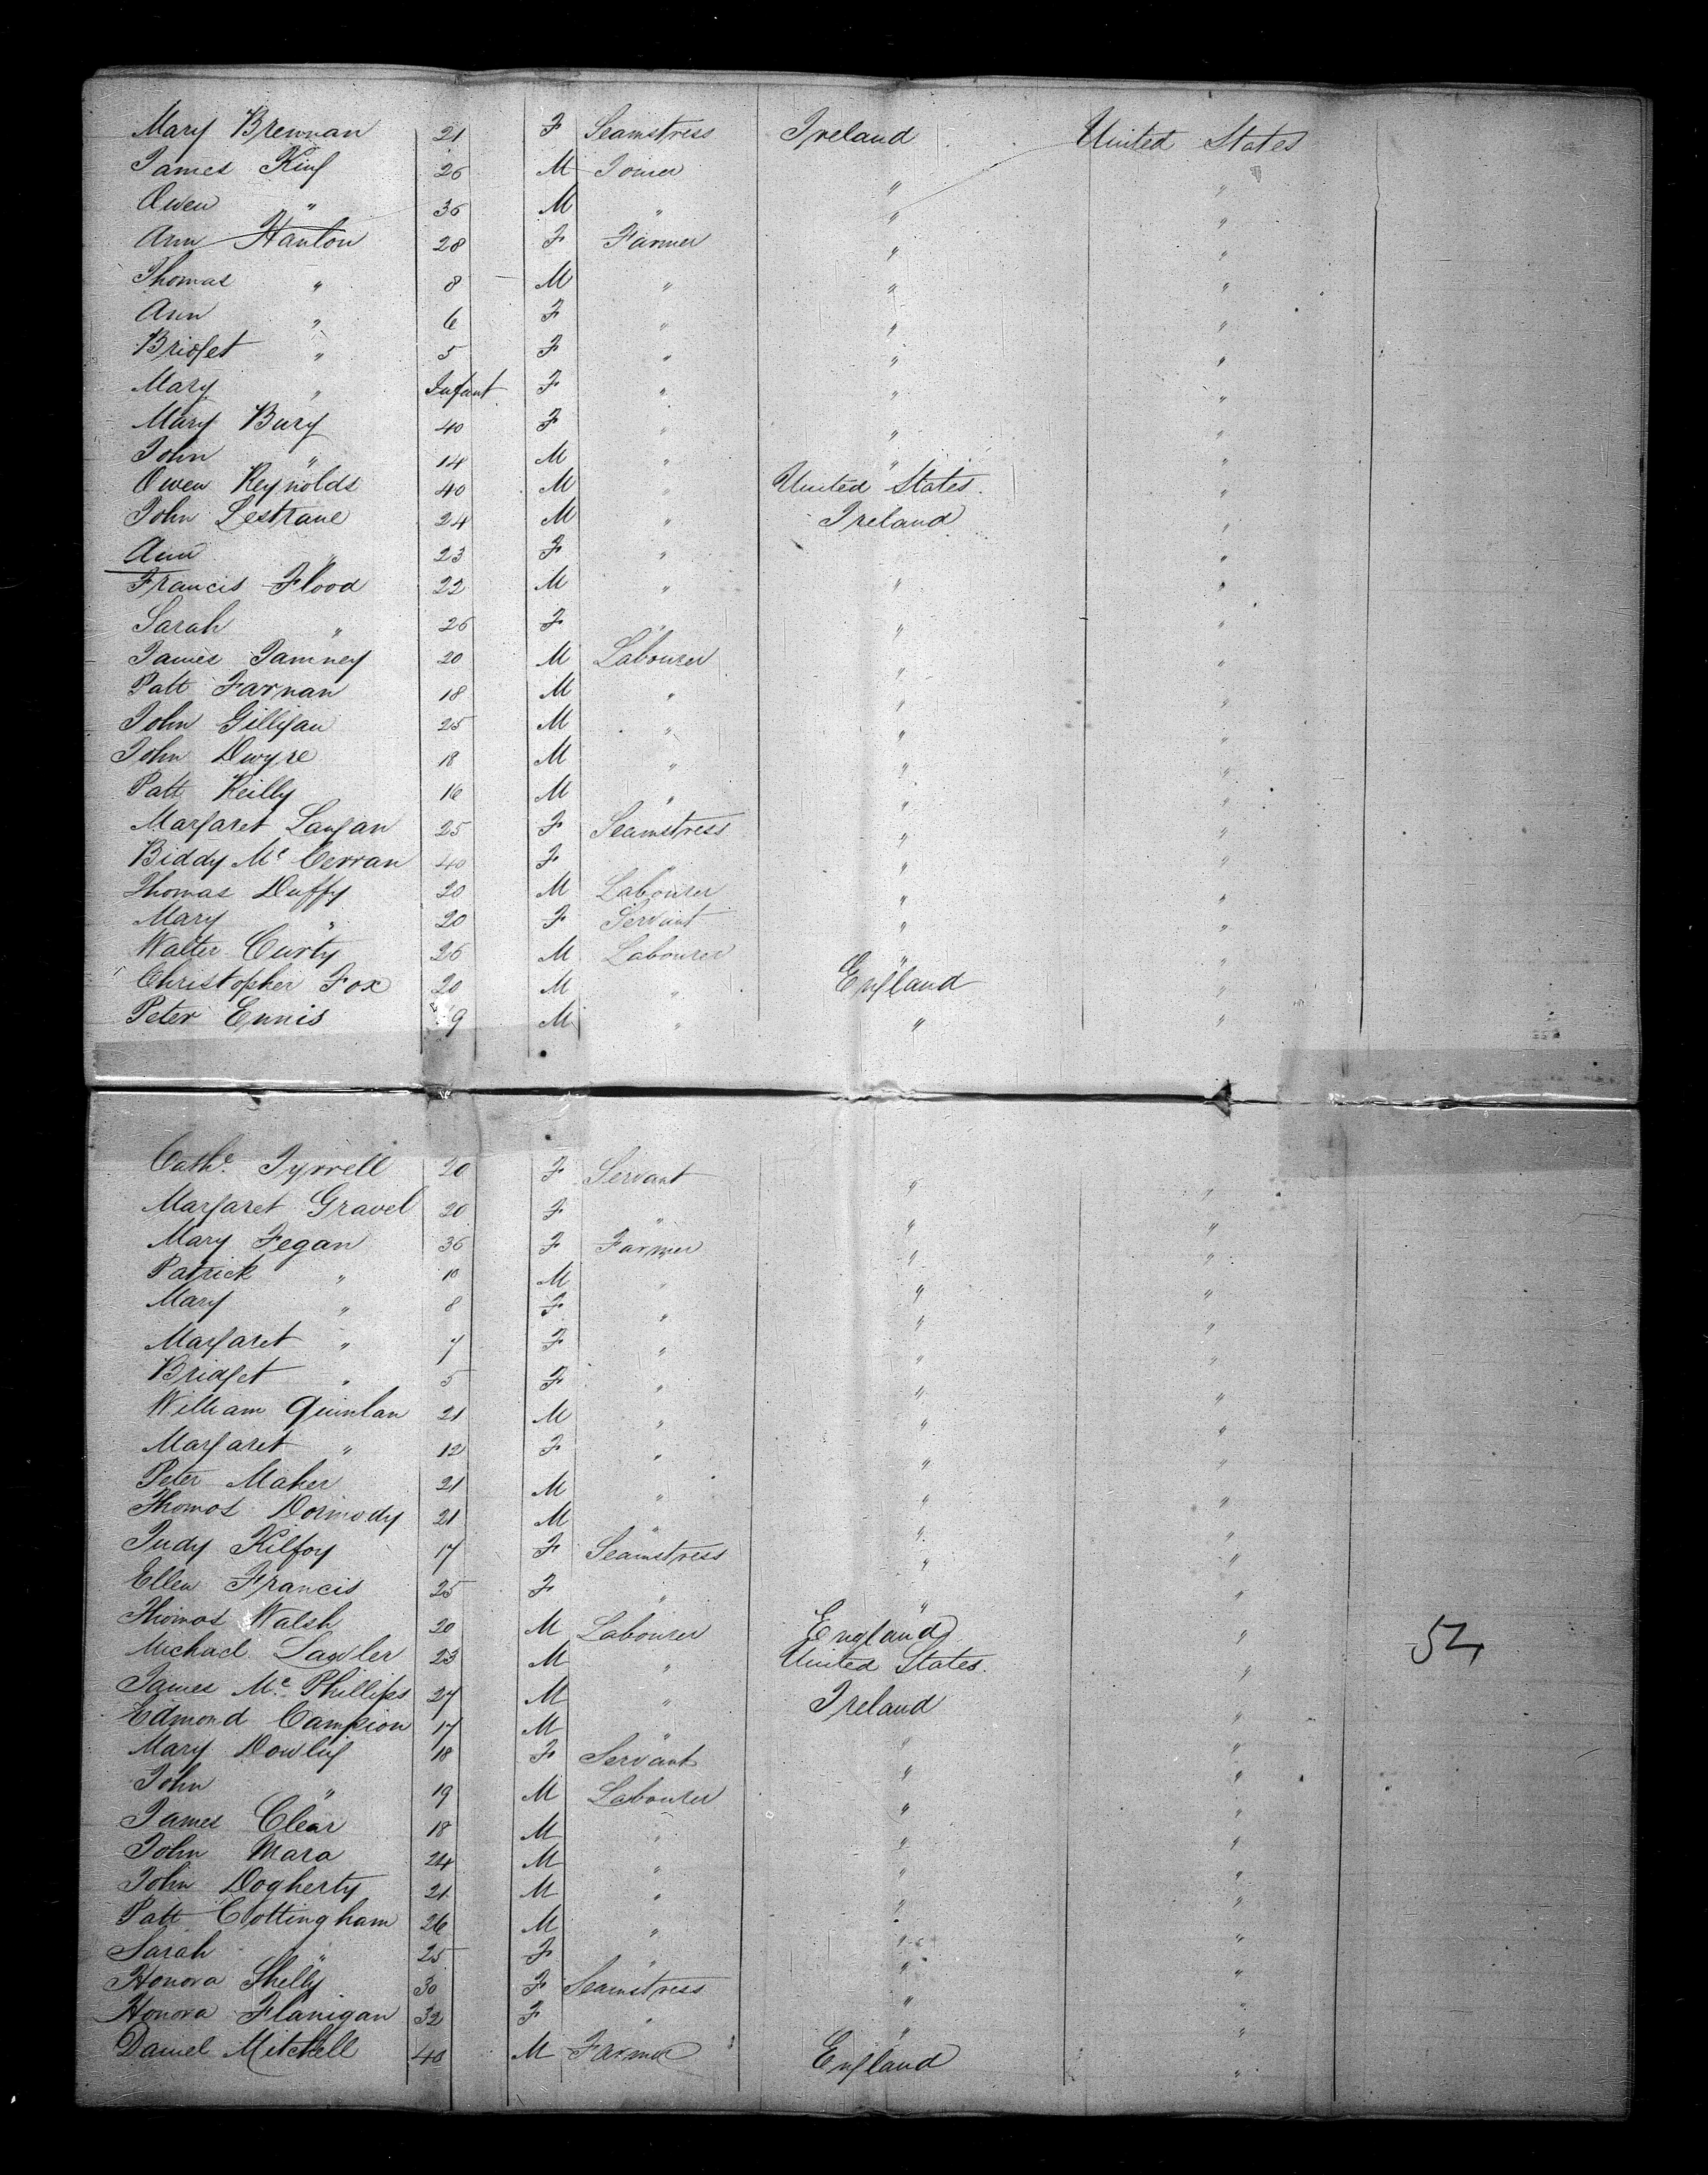 Mary Brennan 21 F Seamstress Ireland United States
James King 26 M Joiner " "
Owen " 36 M " " "
Ann Hanlon 28 F Farmer " "
Thomas " 8 M " " "
Ann " 6 F " " "
Bridget " 5 F " " "
Mary " Infant F " " "
Mary Burg 40 F " " "
John " 14 M " " "
Owen Reynolds 40 M " United States "
John Lestrane 24 M " Ireland "
Ann " 23 F " "
Francis Flood 22 M " " "
Sarah " 26 F " " "
James Tamney 20 M Labourer " "
Patt Farnan 18 M " " "
John Gilligan 25 M " " "
John Dwyre 18 M " " "
Patt Reilly 16 M " " "
Margaret Langan 25 F Seamstress " "
Biddy Mc Cerran 40 F " " "
Thomas Duffy 20 M Labourer " "
Mary " 20 F Servant " "
Walter Curty 26 M Labourer " "
Christopher Fox 20 M " England "
Peter Ennis 9 M " " "
Cathe Tyrrell 20 F Servant " "
Margaret Gravel 20 F " " "
Mary Fegan 36 F Farmer " "
Patrick " 10 M " " "
Mary " 8 F " " "
Margaret " 7 F " " "
Bridget " 5 F " " "
William Quinlan 21 M " " "
Margaret " 12 F " " "
Peter Maher 21 M " " "
Thomas Dormody 21 M " " "
Judy Kilfoy 17 F Seamstress " "
Ellen Francis 25 F " " "
Thomas Walsh 20 M Labourer England "
Michael Lawler 23 M " United States "
James Mc Phillips 27 M " Ireland "
Edmond Campion 17 M " " "
Mary Dowling 18 F Servant " "
John " 19 M Labourer " "
James Clear 18 M " " "
John Mara 24 M " " "
John Dogherty 21 M " " "
Patt Cottingham 26 M " " "
Sarah " 25 F " " "
Honora Shelly 30 F Seamstress " "
Honora Flanigan 32 F " " "
Daniel Mitchell 40 M Farmer England "
52